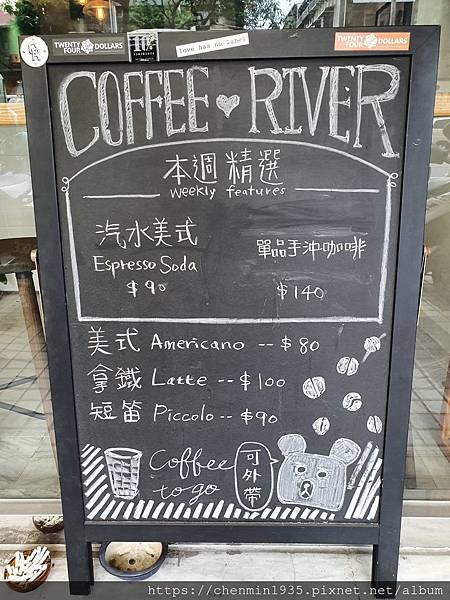 TWENTY FOUR DOLLARS
love has no label
TWENTY FOUR DOLLARS
COFFEE RIVER
本週精選
weekly features
汽水美式
Espresso Soda
$90
單品手沖咖啡
$140
美式 Americano -- $80
拿鐵 Latte -- $100
短笛 Piccolo -- $90
Coffee
to go
可外帶
https://chenmin1935.pixnet.net/album